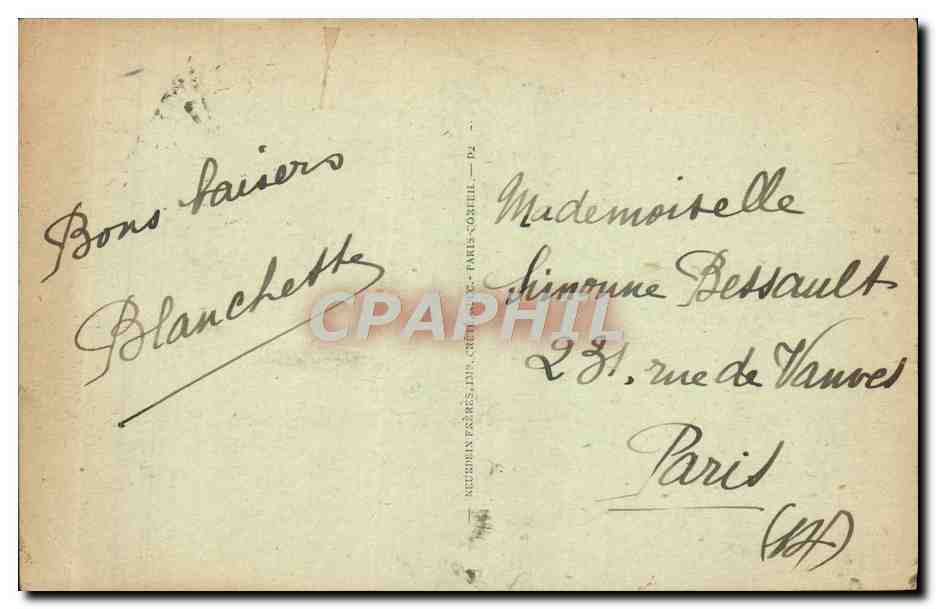 Bons baisers
Blanchette
NEURDEIN FRÈRES, IMP. - PARIS-CORBEIL. — D2
Mademoiselle
Simonne Bessault
231, rue de Vanves
Paris
(14)
CPAPHIL